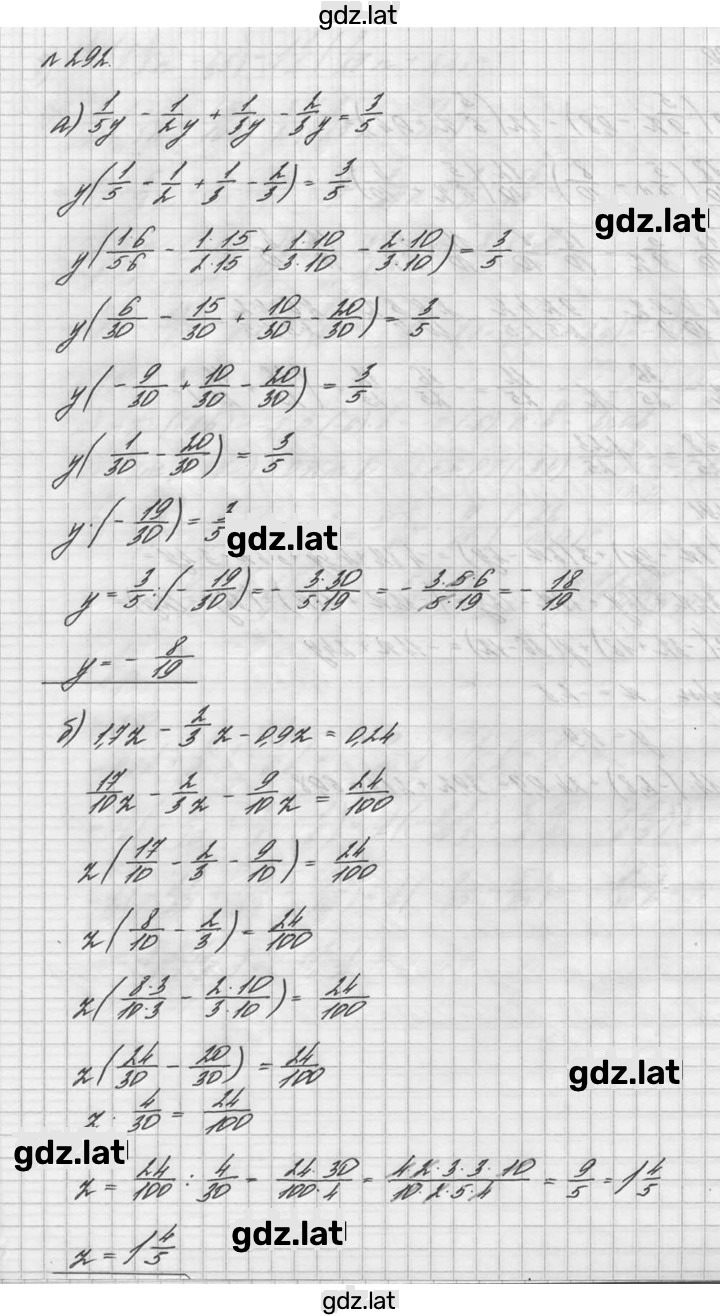 gdz.lat
№ 292.
а) 1/5y - 1/2y + 1/3y - 2/3y = 3/5
y(1/5 - 1/2 + 1/3 - 2/3) = 3/5
gdz.lat
y(1·6/5·6 - 1·15/2·15 + 1·10/3·10 - 2·10/3·10) = 3/5
y(6/30 - 15/30 + 10/30 - 20/30) = 3/5
y(-9/30 + 10/30 - 20/30) = 3/5
y(1/30 - 20/30) = 3/5
y·(-19/30) = 3/5
gdz.lat
y = 3/5 : (-19/30) = - 3·30/5·19 = - 3·5·6/5·19 = - 18/19
y = - 8/19
б) 1,7z - 2/3z - 0,9z = 0,24
17/10z - 2/3z - 9/10z = 24/100
z(17/10 - 2/3 - 9/10) = 24/100
z(8/10 - 2/3) = 24/100
z(8·3/10·3 - 2·10/3·10) = 24/100
z(24/30 - 20/30) = 24/100
gdz.lat
z · 4/30 = 24/100
gdz.lat
z = 24/100 : 4/30 = 24·30/100·4 = 4·2·3·3·10/10·2·5·4 = 9/5 = 1 4/5
gdz.lat
z = 1 4/5
gdz.lat